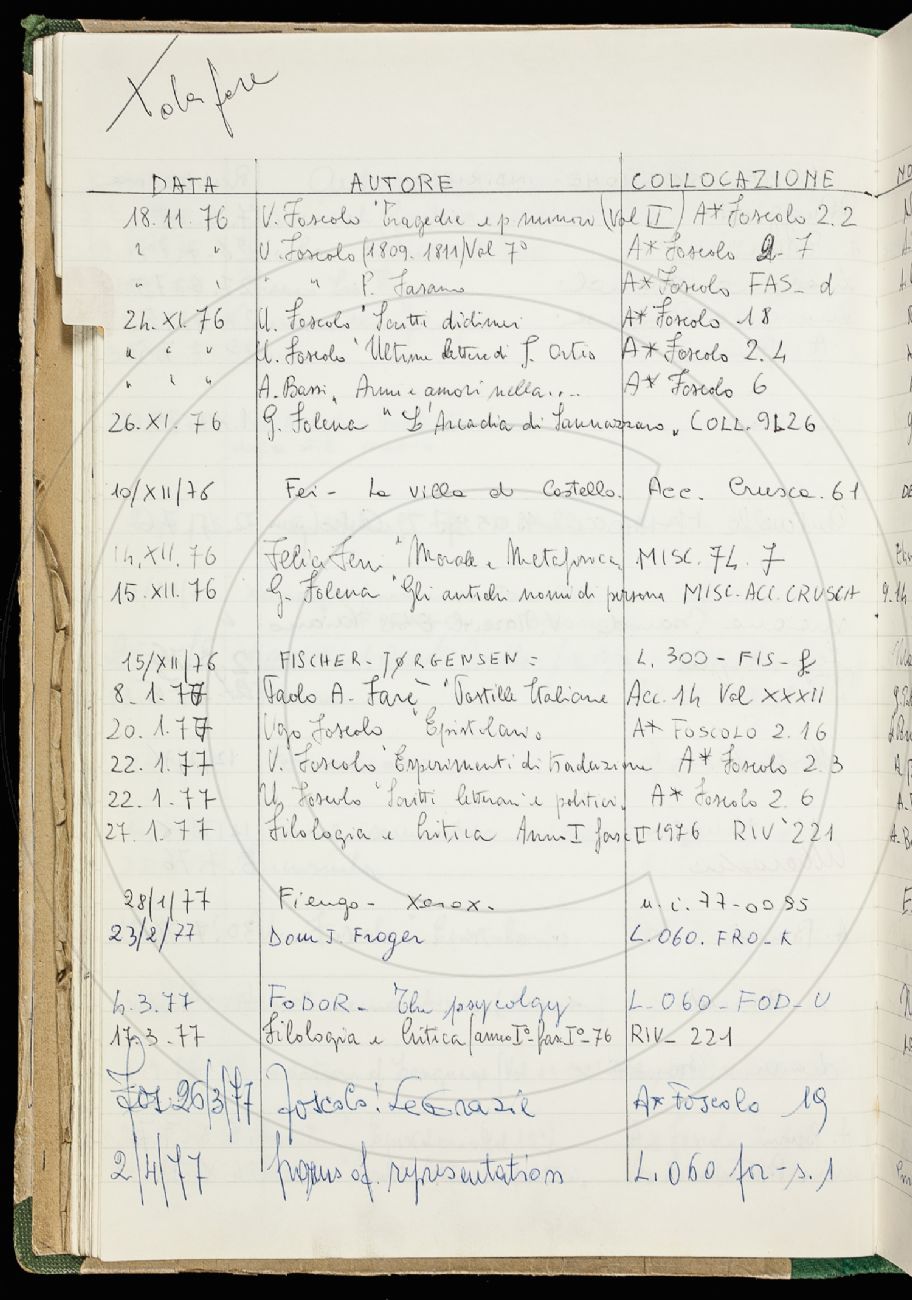 X da fare
DATA AUTORE COLLOCAZIONE
18.11.76 U. Foscolo "Tragedie e p. minori (Vol II) A* Foscolo 2.2
" " U. Foscolo (1809-1811) Vol 7° A* Foscolo 2-7
" " " " P. Fasano A* Foscolo FAS-d
24.XI.76 U. Foscolo "Scritti didimei A* Foscolo 18
" " " U. Foscolo "Ultime lettere di J. Ortis A* Foscolo 2.4
" " " A. Bassi, Armi e amori nella... A* Foscolo 6
26.XI.76 G. Folena "L'Arcadia di Sannazzaro" COLL. 9L26
10/XII/76 Fei - La villa di Castello. Acc. Crusca. 61
14.XII.76 Felici Ferri "Morale e Metafisica MISC. 74. 7
15.XII.76 G. Folena "Gli antichi nomi di persona MISC. ACC. CRUSCA
15/XII/76 FISCHER-JØRGENSEN: L. 300-FIS-f
8.1.77 Paolo A. Farè "Postille Italiane Acc. 14 Vol XXXII
20.1.77 Ugo Foscolo "Epistolario A* FOSCOLO 2.16
22.1.77 U. Foscolo "Esperimenti di traduzione A* Foscolo 2.3
22.1.77 U. Foscolo "Scritti letterari e politici A* Foscolo 2.6
27.1.77 Filologia e Critica Anno I fasc II 1976 RIV 221
28/1/77 Fiengo - Xerox. u.i. 77-0095
23/2/77 Dom J. Froger L.060.FRO-K
4.3.77 FODOR - The psycolgy L-060-FOD-U
17.3.77 Filologia e Critica (anno I°- fasc I°-76 RIV-221
26/3/77 Foscolo: Le Grazie A* Foscolo 19
2/4/77 of representation L.060 for-s.1